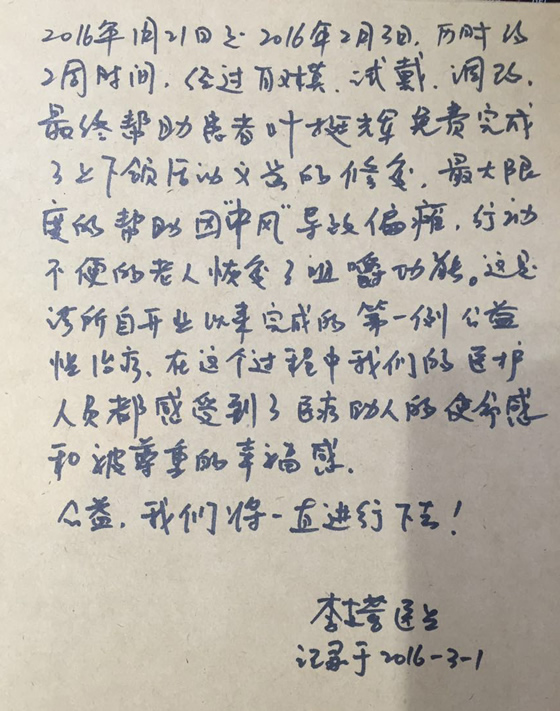 2016年1月21日至2016年2月3日,历时约
2周时间,经过取模、试戴、调改,
最终帮助患者叶挺辉免费完成
了上下颌活动义齿的修复,最大限
度的帮助因"中风"导致偏瘫,行动
不便的老人恢复了咀嚼功能。这是
诊所自开业以来完成的第一例公益
性治疗,在这个过程中我们的医护
人员都感受到了医疗助人的使命感
和被尊重的幸福感.
公益,我们将一直进行下去!
李 医生
记录于2016-3-1